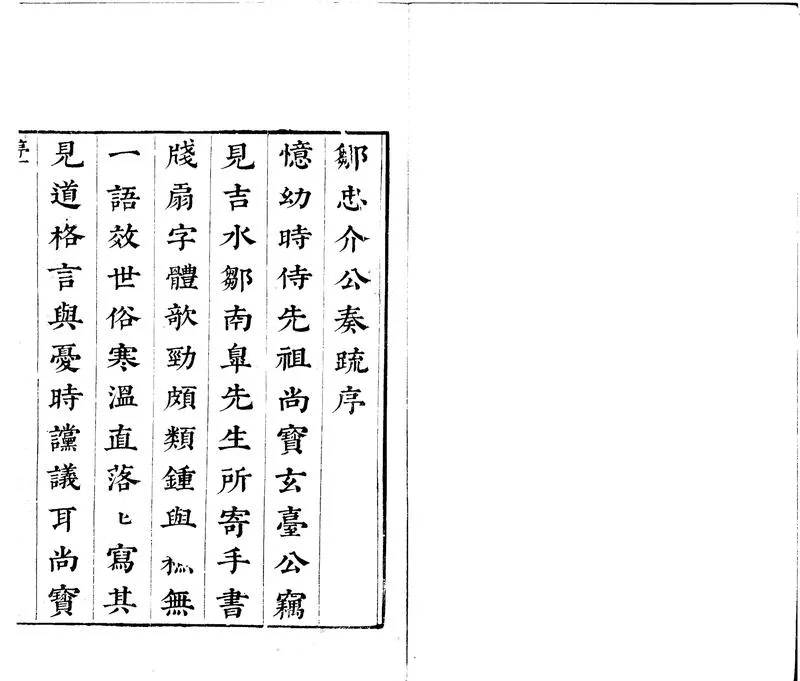 鄒忠介公奏疏序
憶幼時侍先祖尚寶玄臺公竊
見吉水鄒南臯先生所寄手書
牋扇字體欹勁頗類鍾與嵇無
一語效世俗寒溫直落匕寫其
見道格言與憂時讜議耳尚寶
序一